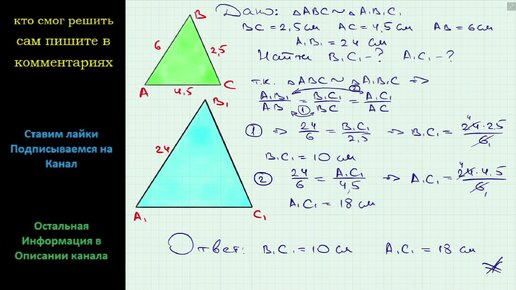 кто смог решить
сам пишите в
комментариях
Ставим лайки
Подписываемся на
Канал
Остальная
Информация в
Описании канала
B
6
2,5
A
4,5
C
B₁
24
A₁
C₁
Дано: △ABC ~ △A₁B₁C₁
BC = 2,5 см AC = 4,5 см AB = 6 см
A₁B₁ = 24 см
Найти B₁C₁ - ? A₁C₁ - ?
т.к. △ABC ~ △A₁B₁C ⇒
A₁B₁/AB = B₁C₁/BC = A₁C₁/AC
① ②
① ⇒ 24/6 = B₁C₁/2,5 ⇒ B₁C₁ = 24·2,5/6
4 1
B₁C₁ = 10 см
② 24/6 = A₁C₁/4,5 ⇒ A₁C₁ = 24·4,5/6
4 1
A₁C₁ = 18 см
Ответ: B₁C₁ = 10 см A₁C₁ = 18 см